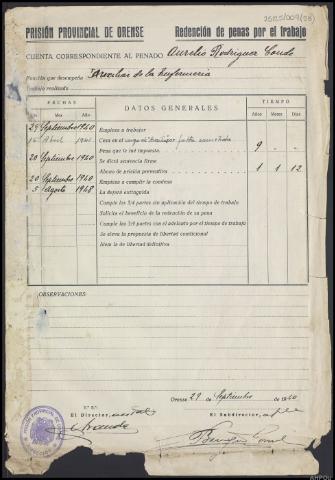 25125/009(28)
PRISIÓN PROVINCIAL DE ORENSE Redención de penas por el trabajo
CUENTA CORRESPONDIENTE AL PENADO Aurelio Rodriguez Conde
Función que desempeña Auxiliar de la Enfermeria
Trabajo realizado
FECHAS DATOS GENERALES TIEMPO
Día Mes Año Años Meses Días
29 Septiembre 1940 Empieza a trabajar
15 Abril Cesa en el
Pena que le fué impuesta 9 " "
20 Septiembre 1940 Se dictó sentencia firme
Abono de prisión preventiva 1 1 12
20 Septiembre 1940 Empieza a cumplir la condena
5 Agosto 1948 La dejará extinguida
Cumple las 3/4 partes sin aplicación del tiempo de trabajo
Solicita el beneficio de la redención de su pena
Cumple las 3/4 partes con el adelanto por el tiempo de trabajo
Se eleva la propuesta de libertad condicional
Idem la de libertad definitiva
OBSERVACIONES:
Orense 29 de Septiembre de 1940
V.º B.º
El Director, El Subdirector,